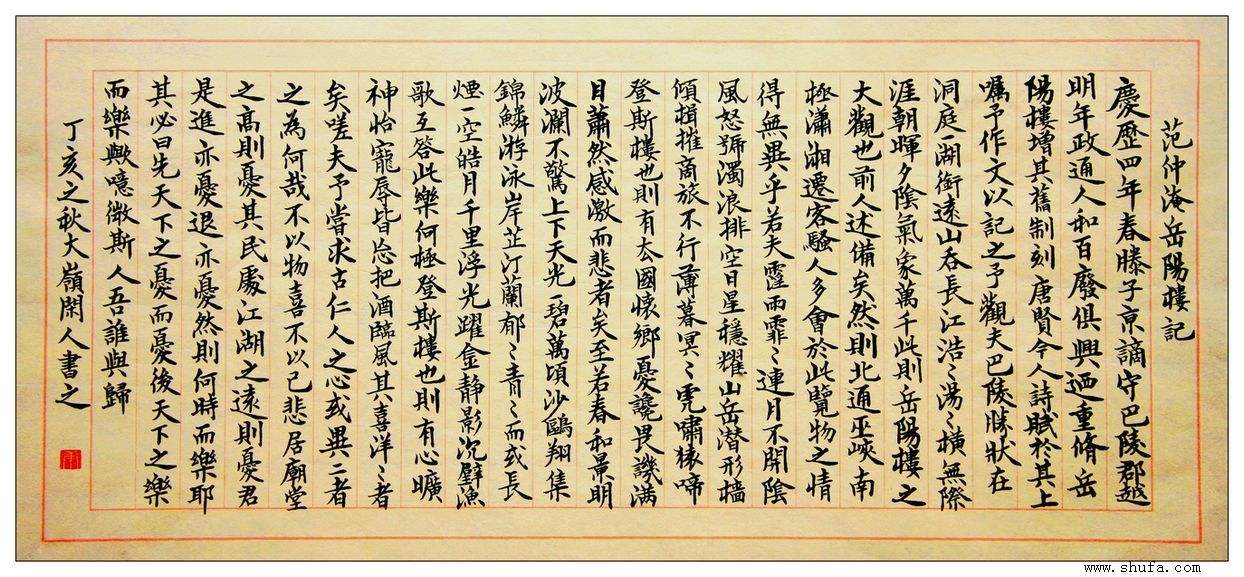 范仲淹岳陽樓記
慶歷四年春滕子京謫守巴陵郡越
明年政通人和百廢俱興迺重脩岳
陽樓增其舊制刻唐賢今人詩賦於其上
囑予作文以記之予觀夫巴陵勝狀在
洞庭一湖銜遠山吞長江浩〻湯〻橫無際
涯朝暉夕陰氣象萬千此則岳陽樓之
大觀也前人述備矣然則北通巫峽南
極瀟湘遷客騷人多會於此覽物之情
得無異乎若夫霪雨霏〻連月不開陰
風怒號濁浪排空日星穩耀山岳潜形檣
傾揖摧商旅不行薄暮冥〻虎嘯猿啼
登斯樓也則有去國懷鄉憂讒畏譏满
目蕭然感激而悲者矣至若春和景明
波瀾不驚上下天光一碧萬頃沙鷗翔集
錦鱗游泳岸芷汀蘭郁〻青〻而或長
煙一空皓月千里浮光躍金静影沉璧漁
歌互答此樂何極登斯樓也則有心曠
神怡寵辱皆忘把酒臨風其喜洋〻者
矣嗟夫予嘗求古仁人之心或異二者
之為何哉不以物喜不以己悲居廟堂
之高則憂其民處江湖之遠則憂君
是進亦憂退亦憂然則何時而樂耶
其必曰先天下之憂而憂後天下之樂
而樂歟噫微斯人吾誰與歸
丁亥之秋大嶺閑人書之
www.shufa.com